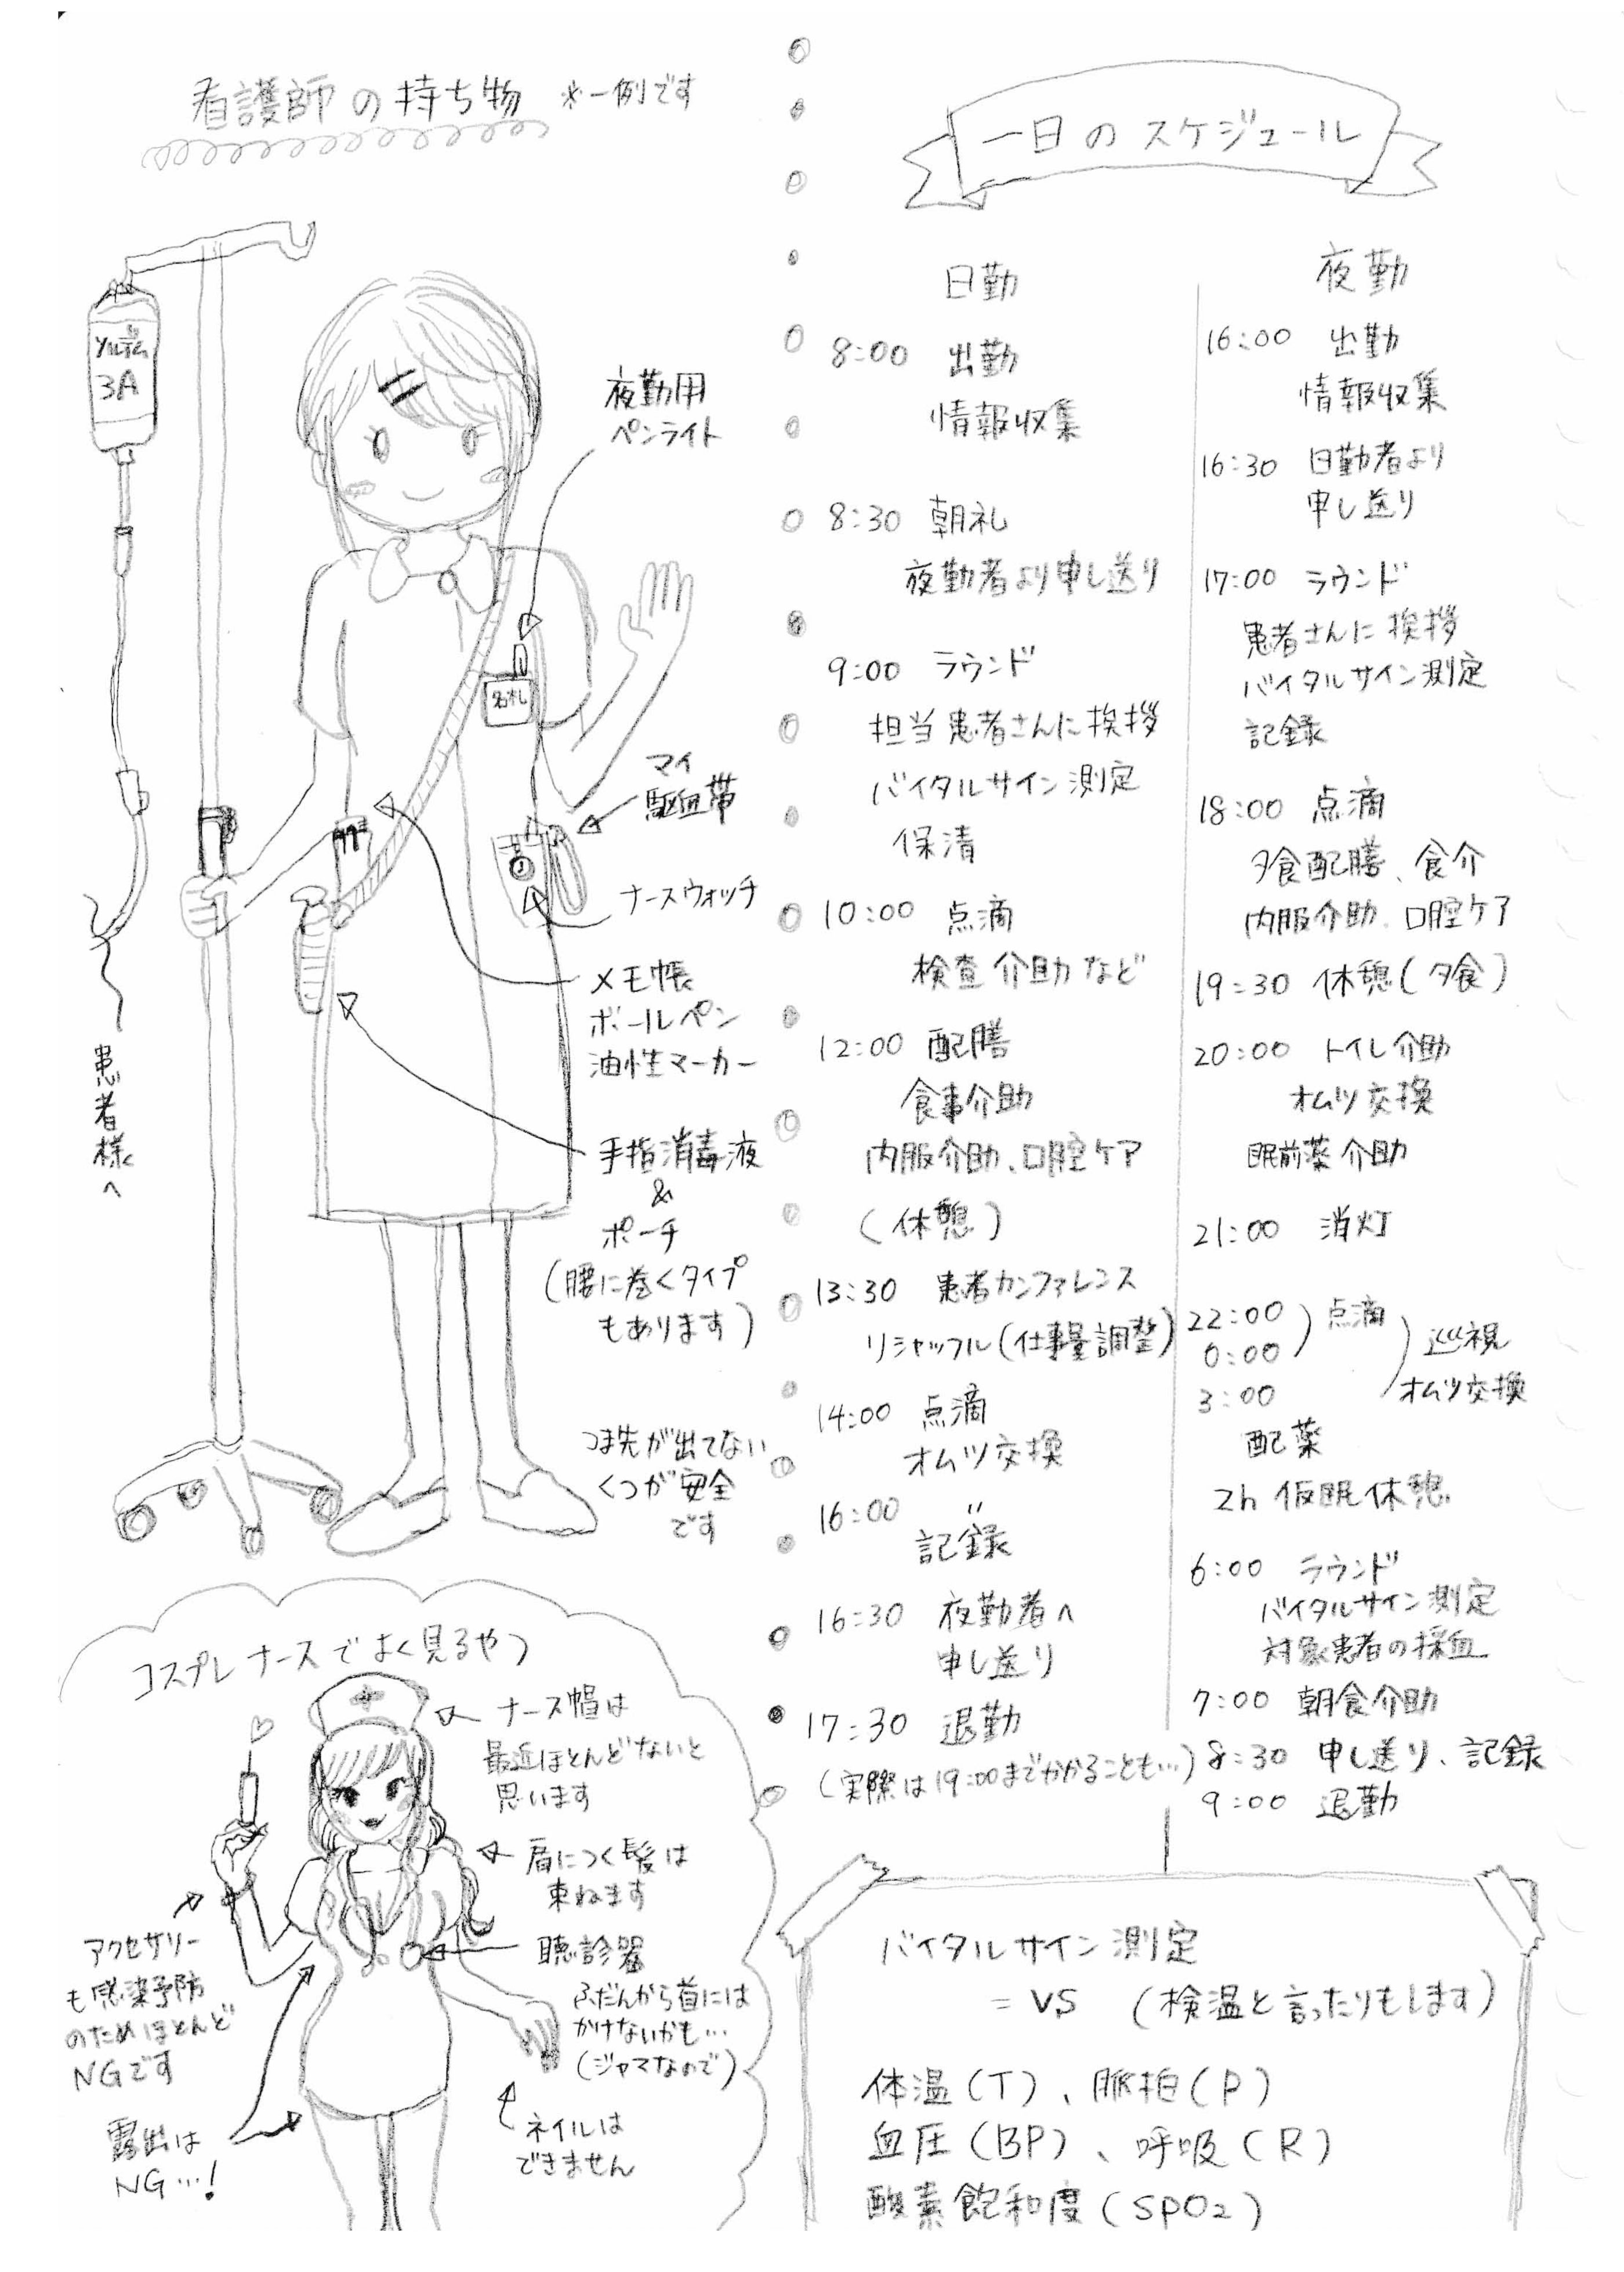 看護師の持ち物 ※一例です
ソルデム
3A
夜勤用
ペンライト
名札
マイ
駆血帯
ナースウォッチ
メモ帳
ボールペン
油性マーカー
患者様へ
手指消毒液
&
ポーチ
(腰に巻くタイプ
もあります)
つま先が出てない
くつが安全
です
コスプレナースでよく見るやつ
ナース帽は
最近ほとんどないと
思います
肩につく髪は
束ねます
聴診器
ふだんから首には
かけないかも…
(ジャマなので)
ネイルは
できません
アクセサリー
も感染予防
のためほとんど
NGです
露出は
NG…!
一日のスケジュール
日勤
8:00 出勤
情報収集
8:30 朝礼
夜勤者より申し送り
9:00 ラウンド
担当患者さんに挨拶
バイタルサイン測定
保清
10:00 点滴
検査介助など
12:00 配膳
食事介助
内服介助、口腔ケア
(休憩)
13:30 患者カンファレンス
リシャッフル(仕事量調整)
14:00 点滴
オムツ交換
16:00 〃
記録
16:30 夜勤者へ
申し送り
17:30 退勤
(実際は19:00までかかることも…)
夜勤
16:00 出勤
情報収集
16:30 日勤者より
申し送り
17:00 ラウンド
患者さんに挨拶
バイタルサイン測定
記録
18:00 点滴
夕食配膳、食介
内服介助、口腔ケア
19:30 休憩(夕食)
20:00 トイレ介助
オムツ交換
眠前薬介助
21:00 消灯
22:00 点滴
0:00 巡視
3:00 オムツ交換
配薬
2h 仮眠休憩
6:00 ラウンド
バイタルサイン測定
対象患者の採血
7:00 朝食介助
8:30 申し送り、記録
9:00 退勤
バイタルサイン測定
=VS (検温と言ったりもします)
体温(T)、脈拍(P)
血圧(BP)、呼吸(R)
酸素飽和度(SPO₂)